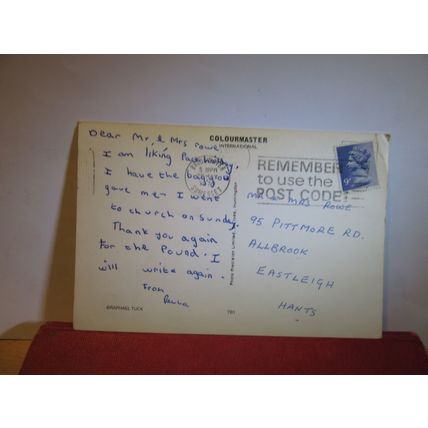 Dear Mr & Mrs Rowe,
I am liking
I have the
gave me. I went
to church on Sunday.
Thank you again
for the Pound. I
will write again.
From
Paula
©RAPHAEL TUCK
COLOURMASTER
INTERNATIONAL
Photo Precision Limited, St. Ives, Huntingdon
781
REMEMBER
to use the
POST CODE
9
MR & MRS ROWE
95 PITTMORE RD.
ALLBROOK
EASTLEIGH
HANTS